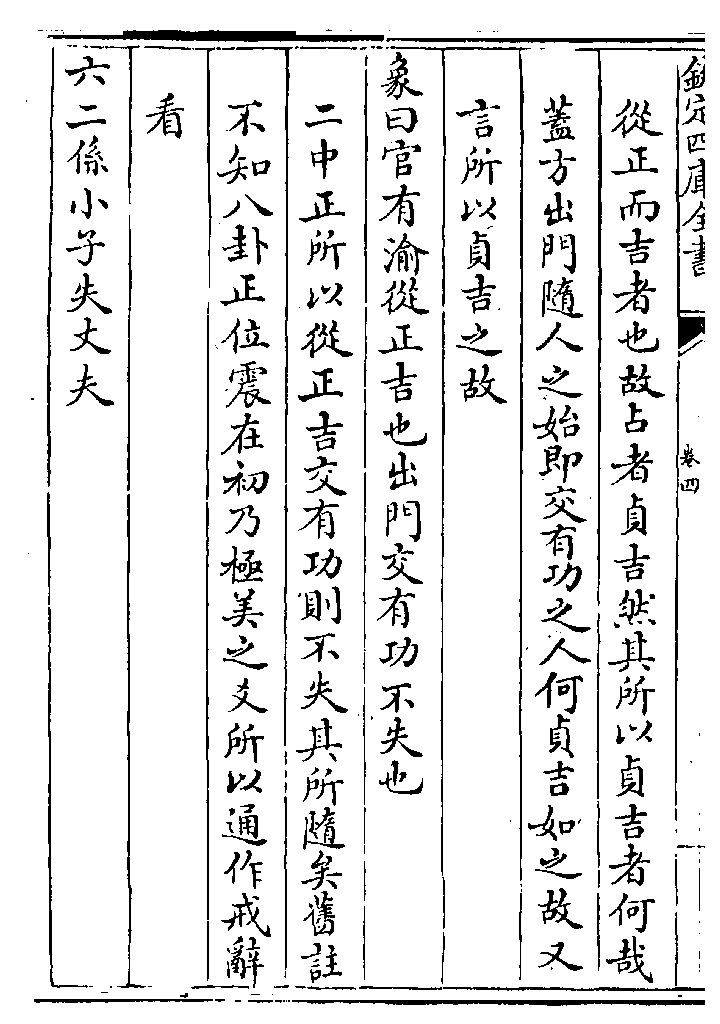 欽定四庫全書
卷四
從正而吉者也故占者貞吉然其所以貞吉者何哉
蓋方出門隨人之始即交有功之人何貞吉如之故又
言所以貞吉之故
象曰官有渝從正吉也出門交有功不失也
二中正所以從正吉交有功則不失其所隨矣舊註
不知八卦正位震在初乃極美之爻所以通作戒辭
看
六二係小子失丈夫